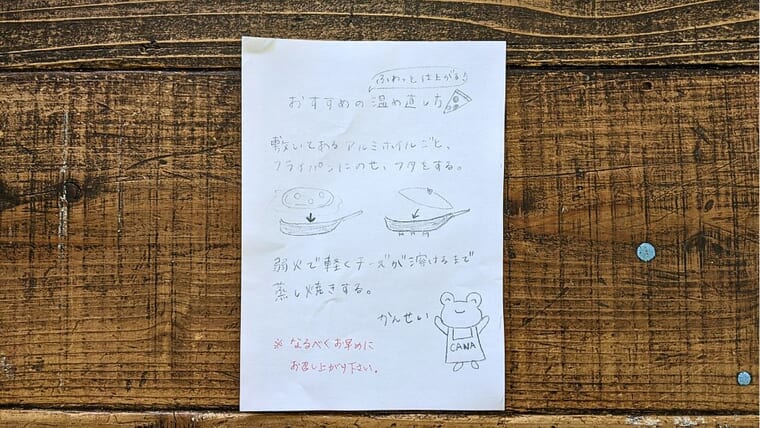 ふわっと仕上がる♪
おすすめの温め直し方
敷いてあるアルミホイルごと、
フライパンにのせ、フタをする。
弱火で軽くチーズが溶けるまで
蒸し焼きする。
かんせい
CANA
※ なるべくお早めに
お召し上がり下さい。